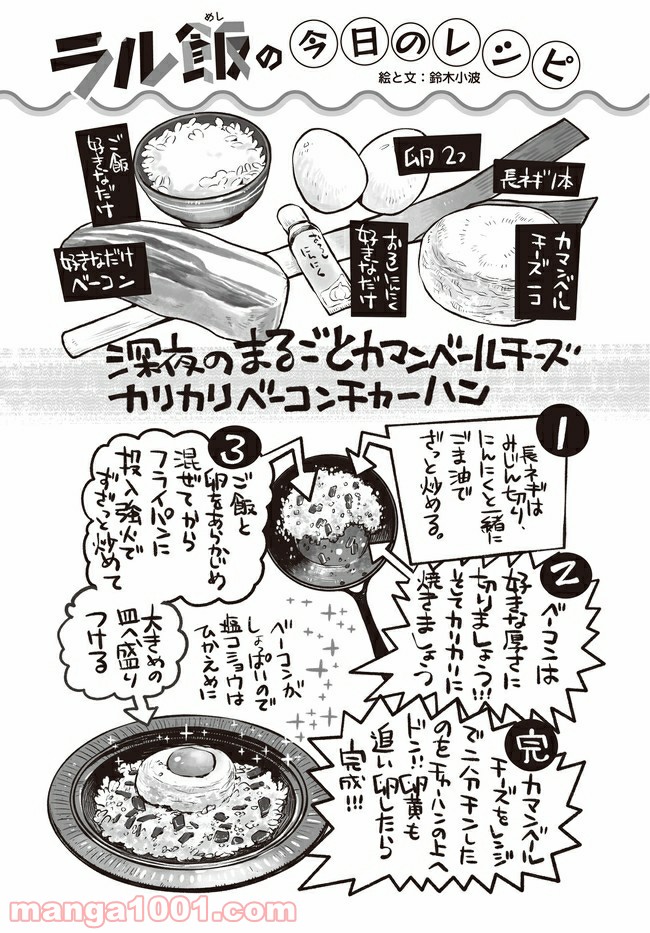 ラル飯の今日のレシピ
めし
絵と文：鈴木小波
ご飯
好きなだけ
卵2つ
長ネギ1本
好きなだけ
ベーコン
おろしにんにく
好きなだけ
カマンベール
チーズ一コ
おろし
にんにく
深夜のまるごとカマンベールチーズ
カリカリベーコンチャーハン
1
長ネギは
みじん切り、
にんにくと一緒に
ごま油で
ざっと炒める。
2
ベーコンは
好きな厚さに
切りましょう!!!
そしてカリカリに
焼きましょう
3
ご飯と
卵をあらかじめ
混ぜてから
フライパンに
投入強火で
ずざっと炒めて
ベーコンが
しょっぱいので
塩コショウは
ひかえめに
大きめの
皿へ盛り
つける
完
カマンベール
チーズをレンジ
で二分チンした
のをチャーハンの上へ
ドン!!卵黄も
追い卵したら
完成!!!
manga1001.com